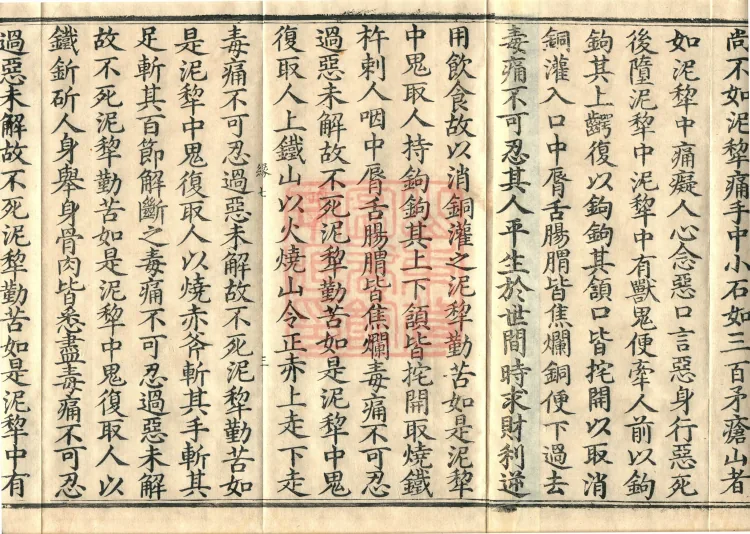 尚不如泥犂痛手中小石如三百矛瘡山者
如泥犂中痛癡人心念惡口言惡身行惡死
後墮泥犂中泥犂中有獸鬼便牽人前以鉤
鉤其上齶復以鉤鉤其頷口皆挓開以取消
銅灌入口中脣舌腸胃皆焦爛銅便下過去
毒痛不可忍其人平生於世間時求財利逆
用飲食故以消銅灌之泥犂勤苦如是泥犂
中鬼取人持鉤鉤其上下頷皆挓開取燒鐵
杵剌人咽中脣舌腸胃皆焦爛毒痛不可忍
過惡未解故不死泥犂勤苦如是泥犂中鬼
復取人上鐵山以火燒山令正赤上走下走
緣七 三
毒痛不可忍過惡未解故不死泥犂勤苦如
是泥犂中鬼復取人以燒赤斧斬其手斬其
足斬其百節解斷之毒痛不可忍過惡未解
故不死泥犂勤苦如是泥犂中鬼復取人以
鐵釿斫人身舉身骨肉皆悉盡毒痛不可忍
過惡未解故不死泥犂勤苦如是泥犂中有